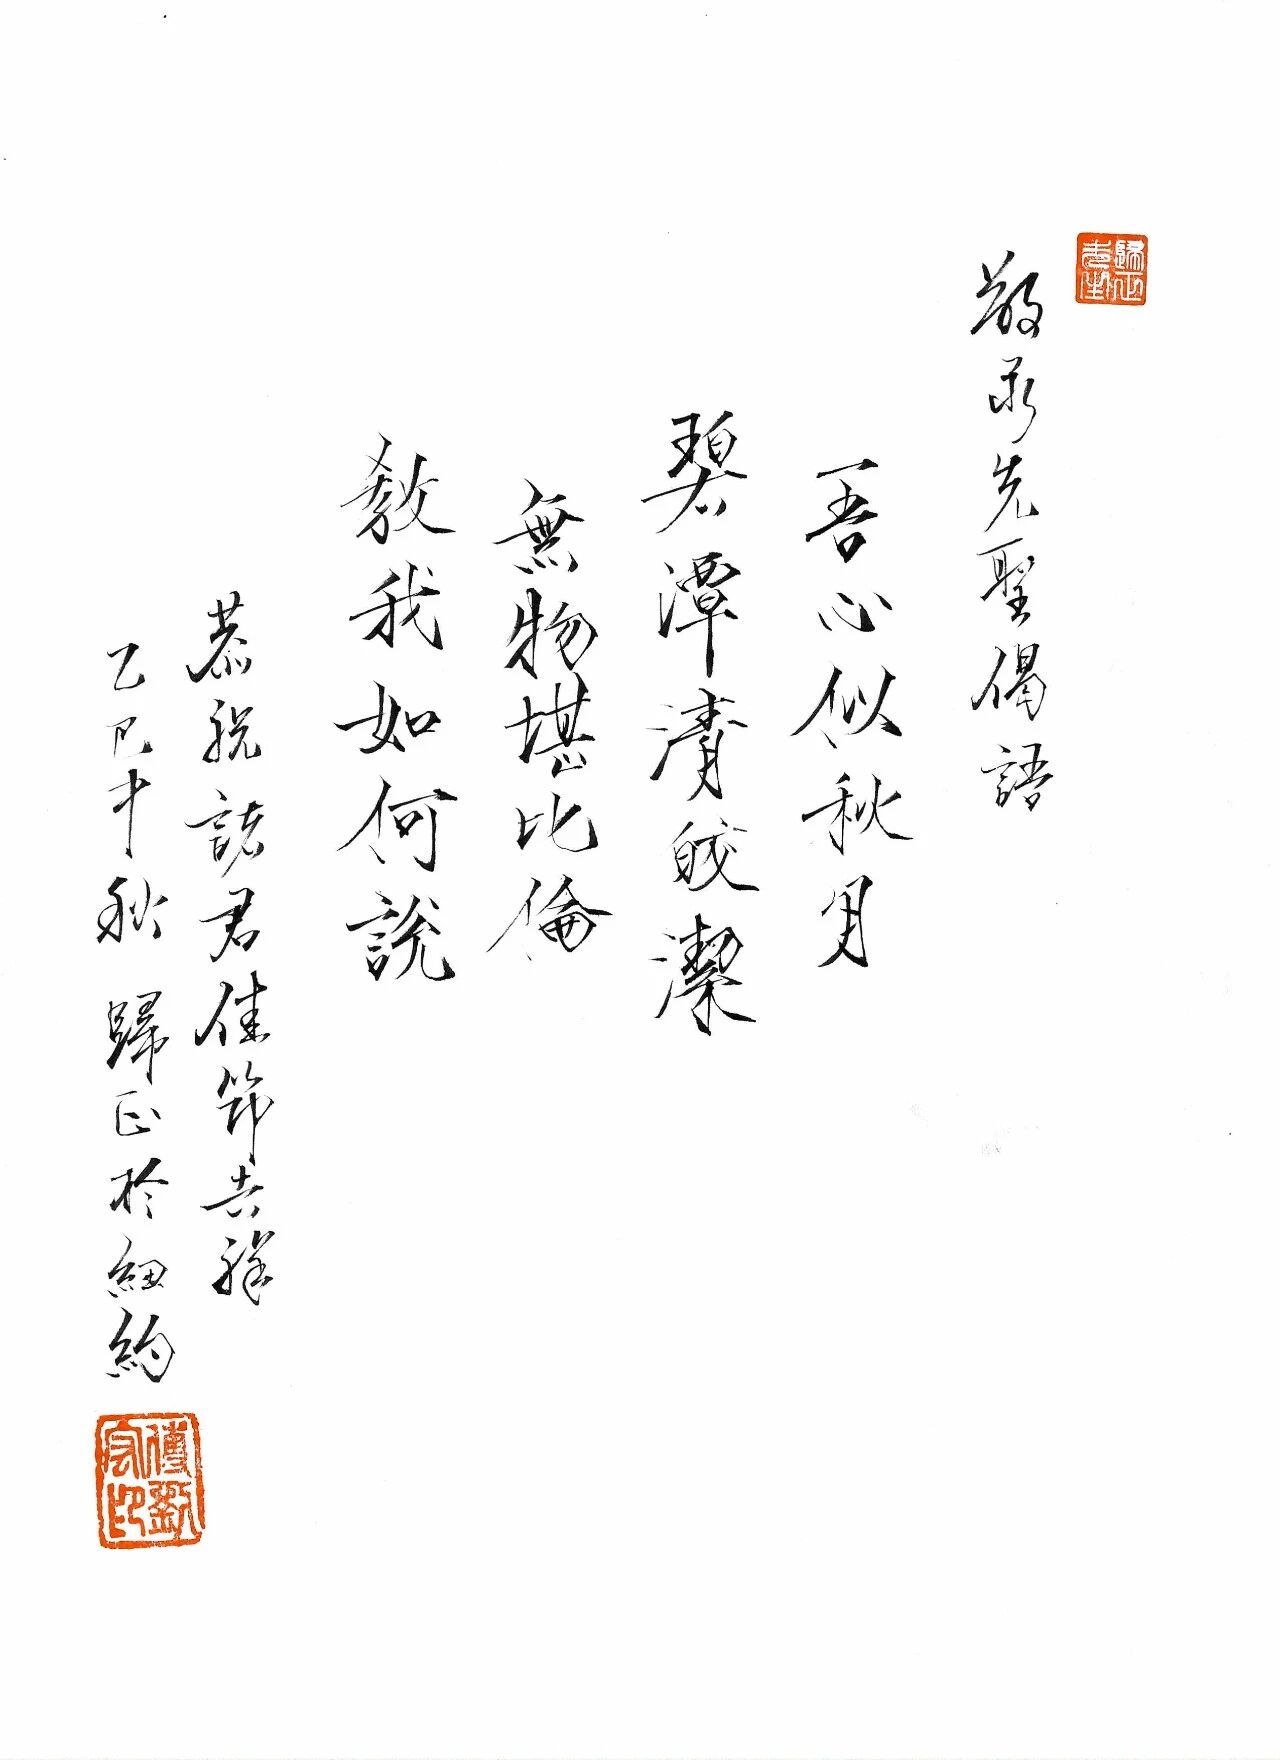 敬承先聖偈語
吾心似秋月
碧潭清皎潔
無物堪比倫
教我如何說
恭祝諸君佳節吉祥
乙巳中秋 歸正於紐約